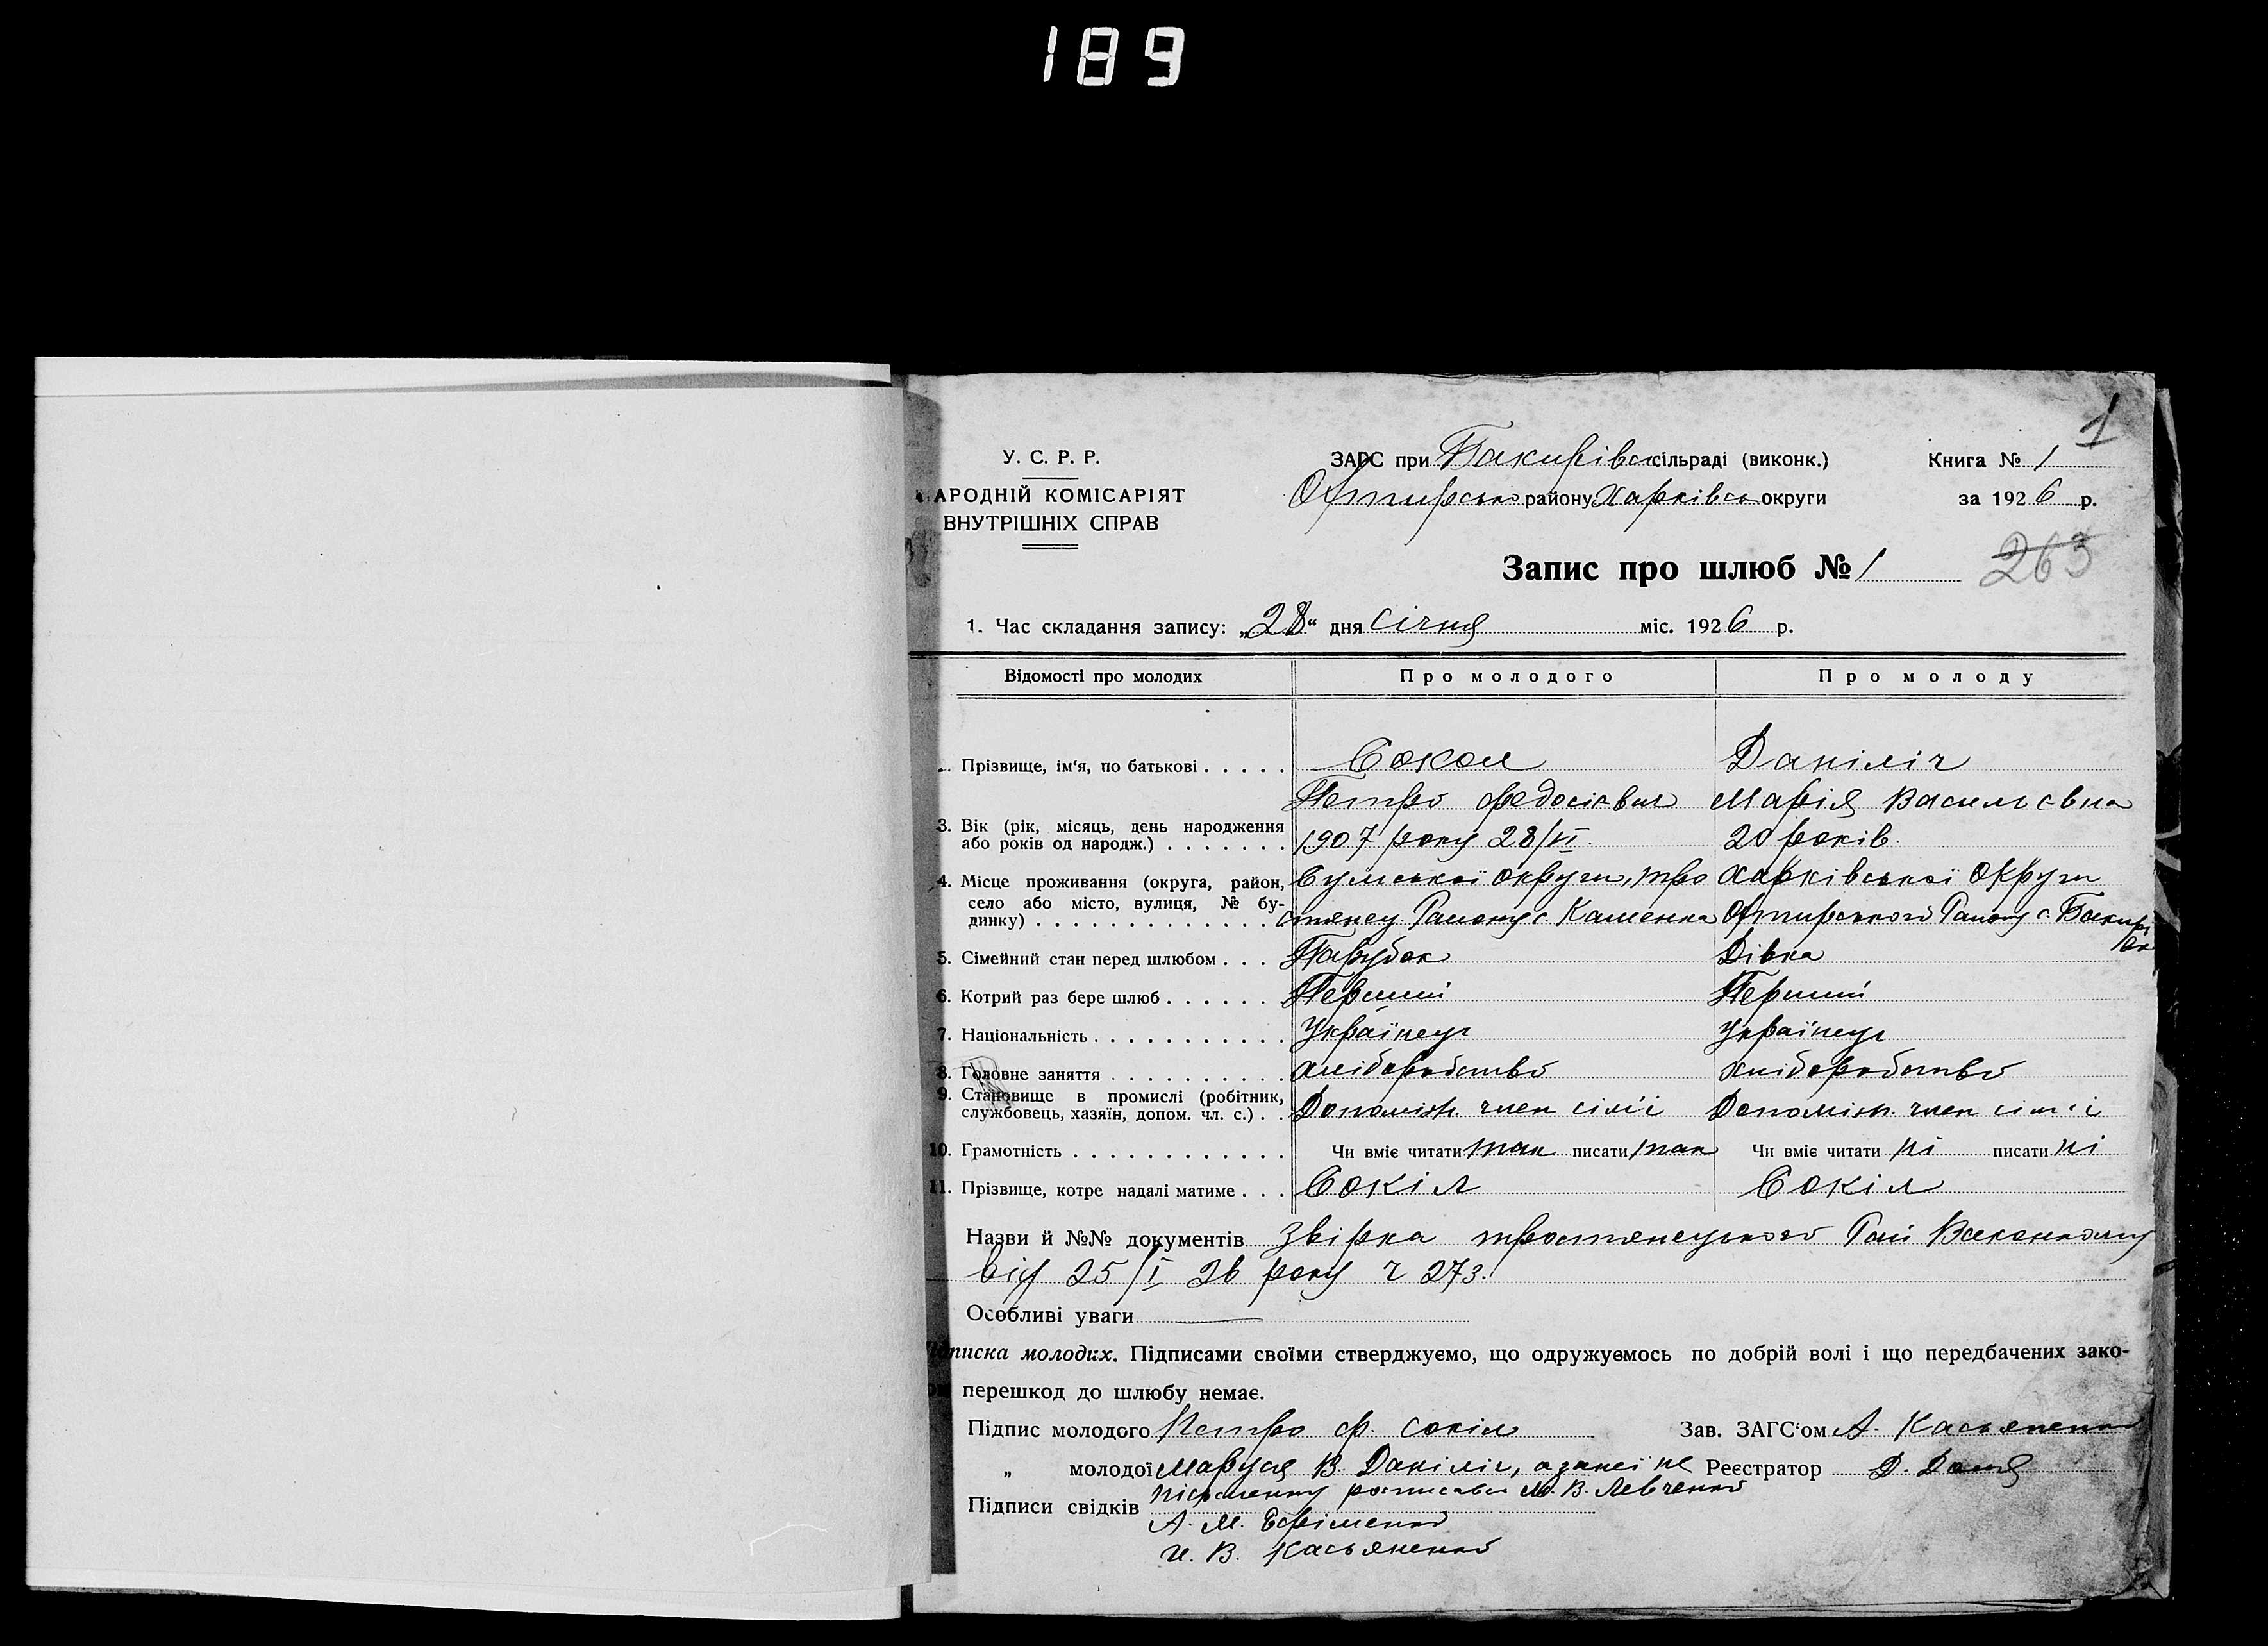 189
1
У. С. Р. Р.
АРОДНІЙ КОМІСАРІЯТ
ВНУТРІШНІХ СПРАВ
ЗАГС при Бакирівс сільраді (виконк.)
Охтирсько району Харківсь округи
Книга № 1
за 1926 р.
Запис про шлюб № 1
263
1. Час складання запису: „28“ дня січня міс. 1926 р.
Відомості про молодих Про молодого Про молоду
Прізвище, ім‘я, по батькові Сокол Даніліч
Петро Федосієвич Марія Васильєвна
3. Вік (рік, місяць, день народження або років од народж.) 1907 року 28/VI. 20 років
4. Місце проживання (округа, район, Сумської округи, тро Харківської Округи
село або місто, вулиця, № бу- стянец. Району с. Каменка Охтирського Району с Бакирі
динку) вк
5. Сімейний стан перед шлюбом Парубок Дівка
6. Котрий раз бере шлюб Перший Перший
7. Національність Українець Українець
8. Головне заняття хліборобство хліборобство
9. Становище в промислі (робітник,
службовець, хазяїн, допом. чл. с.) Допоміж. член сім'ї Допоміж. член сім'ї
10. Грамотність Чи вміє читати так писати так Чи вміє читати ні писати ні
11. Прізвище, котре надалі матиме Сокіл Сокіл
Назви й №№ документів Звірка тростянецького Рай Виконкому
від 25/I 26 року ч 273.
Особливі уваги
писка молодих. Підписами своїми стверджуємо, що одружуємось по добрій волі і що передбачених зако-
перешкод до шлюбу немає.
Підпис молодого Петро Ф. Сокіл Зав. ЗАГС‘ом А. Касьяненко
„ молодої Маруся В. Даніліч, а за неї не Реєстратор Д.
Підписи свідків письменну росписався М. В. Левченко
А. М. Єфіменко
И. В. Касьяненко